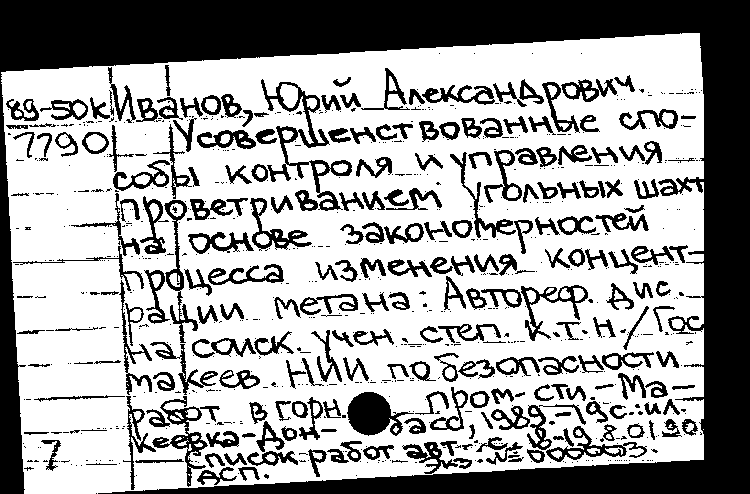 89-50к Иванов, Юрий Александрович.
7790 Усовершенствованные спо-
собы контроля и управления
проветриванием угольных шахт
на основе закономерностей
процесса изменения концент-
рации метана: Автореф. дис.
на соиск. учен. степ. к.т.н. / Гос
макеев. НИИ по безопасности
работ в горн. пром-сти. - Ма-
кеевка-Дон- басс, 1989. - 19 с.: ил.
7 Список работ авт. с. 18-19
ДСП. Экз. №